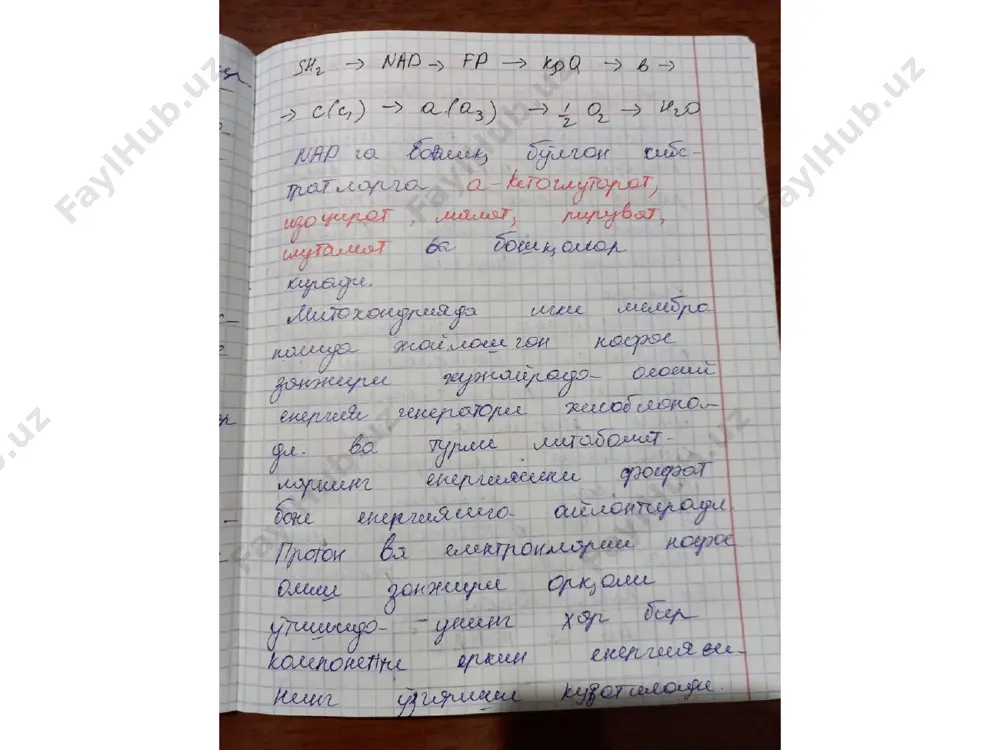 SH₂ → NAD → FP → KoQ → b →
→ c(c₁) → a(a₃) → ½ O₂ → H₂O
NAD га боғлиқ бўлган субс-
тратларга α-кетоглутарат,
изоцитрат, малат, пируват,
глутамат ва бошқалар
киради.
Митохондрияда ички мембра
насида жойлашган нафас
занжири хужайрада асосий
енергия генератори хисоблана-
ди. ва турли митаболит-
ларнинг енергиясини фосфат
боғ енергиясига айлантиради
Протон ва електронларни нафас
олиш занжири орқали
ўтишида унинг хар бир
компоненти еркин енергияси-
нинг ўзгариши кузатилади.
FaylHub.uz
FaylHub.uz
FaylHub.uz
FaylHub.uz
FaylHub.uz